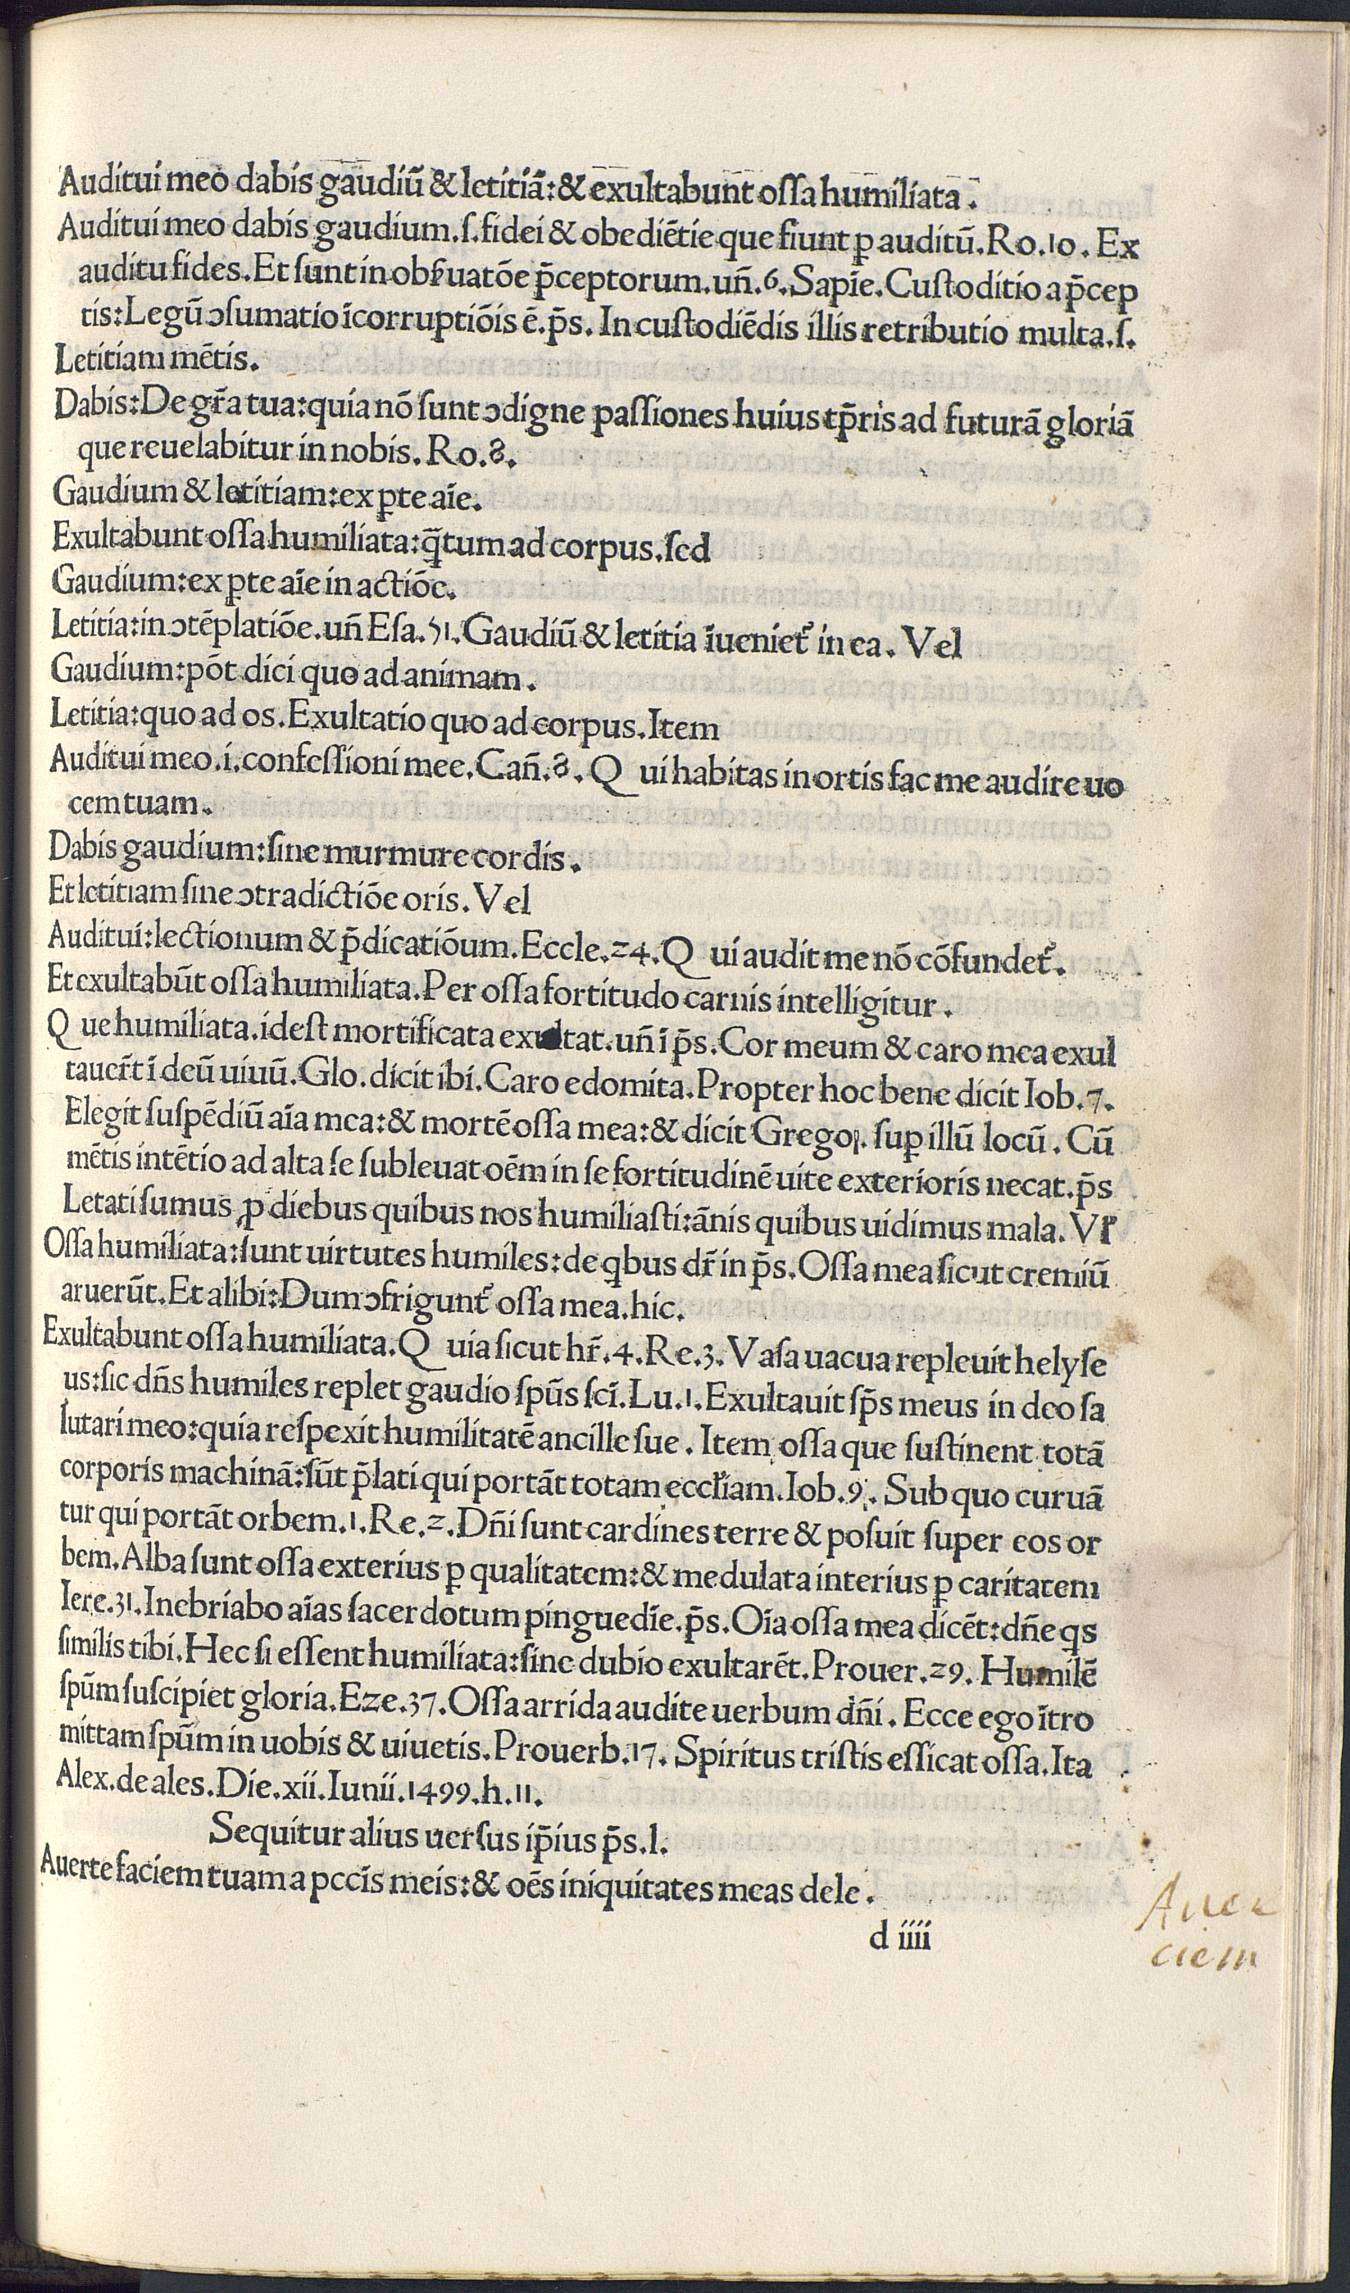 Auditui meo dabis gaudiũ & letitiã: & exultabunt oſſa humiliata.
Auditui meo dabis gaudium.ſ.fidei & obediẽtie que fiunt ꝑ auditũ.Ro.10. Ex
auditu fides.Et ſunt in obſ̃uatõe p̃ceptorum.uñ.6.Sapĩe.Cuſtoditio a p̃cep
tis:Legũ ↄſumatio ĩcorruptiõis ẽ.p̃s. In cuſtodiẽdis illis retributio multa.ſ.
Letitiam mẽtis.
Dabis:De gr̃a tua:quia nõ ſunt ↄdigne paſſiones huius tp̃ris ad futurã gloriã
que reuelabitur in nobis.Ro.8.
Gaudium & letitiam:ex ꝑte aĩe.
Exultabunt oſſa humiliata:q̃tum ad corpus.ſed
Gaudium:ex ꝑte aĩe in actiõe.
Letitia:in ↄtẽplatiõe.uñ Eſa.51.Gaudiũ & letitia ĩueniet᷑ in ea. Vel
Gaudium:põt dici quo ad animam.
Letitia:quo ad os.Exultatio quo ad corpus.Item
Auditui meo.i.confeſſioni mee.Cañ.8.Q ui habitas in ortis fac me audire uo
cem tuam.
Dabis gaudium:ſine murmure cordis.
Et letitiam ſine ↄtradictiõe oris.Vel
Auditui:lectionum & p̃dicatiõum.Eccle.24.Q ui audit me nõ cõfundet᷑.
Et exultabũt oſſa humiliata.Per oſſa fortitudo carnis intelligitur.
Q ue humiliata.ideſt mortificata exultat.uñ ĩ p̃s.Cor meum & caro mea exul
tauer̃t ĩ deũ uiuũ.Glo.dicit ibi.Caro edomita.Propter hoc bene dicit Iob.7.
Elegit ſuſpẽdiũ aĩa mea:& mortẽ oſſa mea:& dicit Gregoꝝ. ſuꝑ illũ locũ. Cũ
mẽtis intẽtio ad alta ſe ſubleuat oẽm in ſe fortitudinẽ uite exterioris necat.p̃s
Letati ſumus ꝓ diebus quibus nos humiliaſti:ãnis quibus uidimus mala.Vl̃
Oſſa humiliata:ſunt uirtutes humiles:de qbus dr̃ in p̃s.Oſſa mea ſicut cremiũ
aruerũt.Et alibi:Dum ↄfrigunt᷑ oſſa mea.hic.
Exultabunt oſſa humiliata.Q uia ſicut hr̃.4.Re.3.Vaſa uacua repleuit helyſe
us:ſic dñs humiles replet gaudio ſpũs ſcĩ.Lu.1.Exultauit ſp̃s meus in deo ſa
lutari meo:quia reſpexit humilitatẽ ancille ſue. Item oſſa que ſuſtinent totã
corporis machinã:ſũt p̃lati qui portãt totam eccl̃iam.Iob.9. Sub quo curuã
tur qui portãt orbem.1.Re.2.Dñi ſunt cardines terre & poſuit ſuper eos or
bem.Alba ſunt oſſa exterius ꝑ qualitatem:& medulata interius ꝑ caritatem
Iere.31.Inebriabo aĩas ſacerdotum pinguedĩe.p̃s.Oĩa oſſa mea dicẽt:dñe qs
similis tibi.Hec ſi eſſent humiliata:ſine dubio exultarẽt.Prouer.29. Humilẽ
ſpũm ſuſcipiet gloria.Eze.37.Oſſa arrida audite uerbum dñi. Ecce ego ĩtro
mittam ſpũm in uobis & uiuetis.Prouerb.17. Spiritus triſtis eſſicat oſſa.Ita
Alex.de ales.Die.xii.Iunii.1499.h.11.
Sequitur alius uerſus ip̃ius p̃s.l.
Auerte faciem tuam a pccĩs meis:& oẽs iniquitates meas dele.
d iiii
Auer
ciem